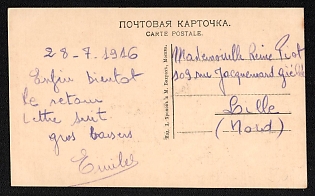 ПОЧТОВАЯ КАРТОЧКА.
CARTE POSTALE.
28-7.1916
Enfin bientôt
le retour
lettre suit
gros baisers
Emile
Mademoiselle Reine Piot
109 rue Jacquemard Giélée
Lille
(Nord)